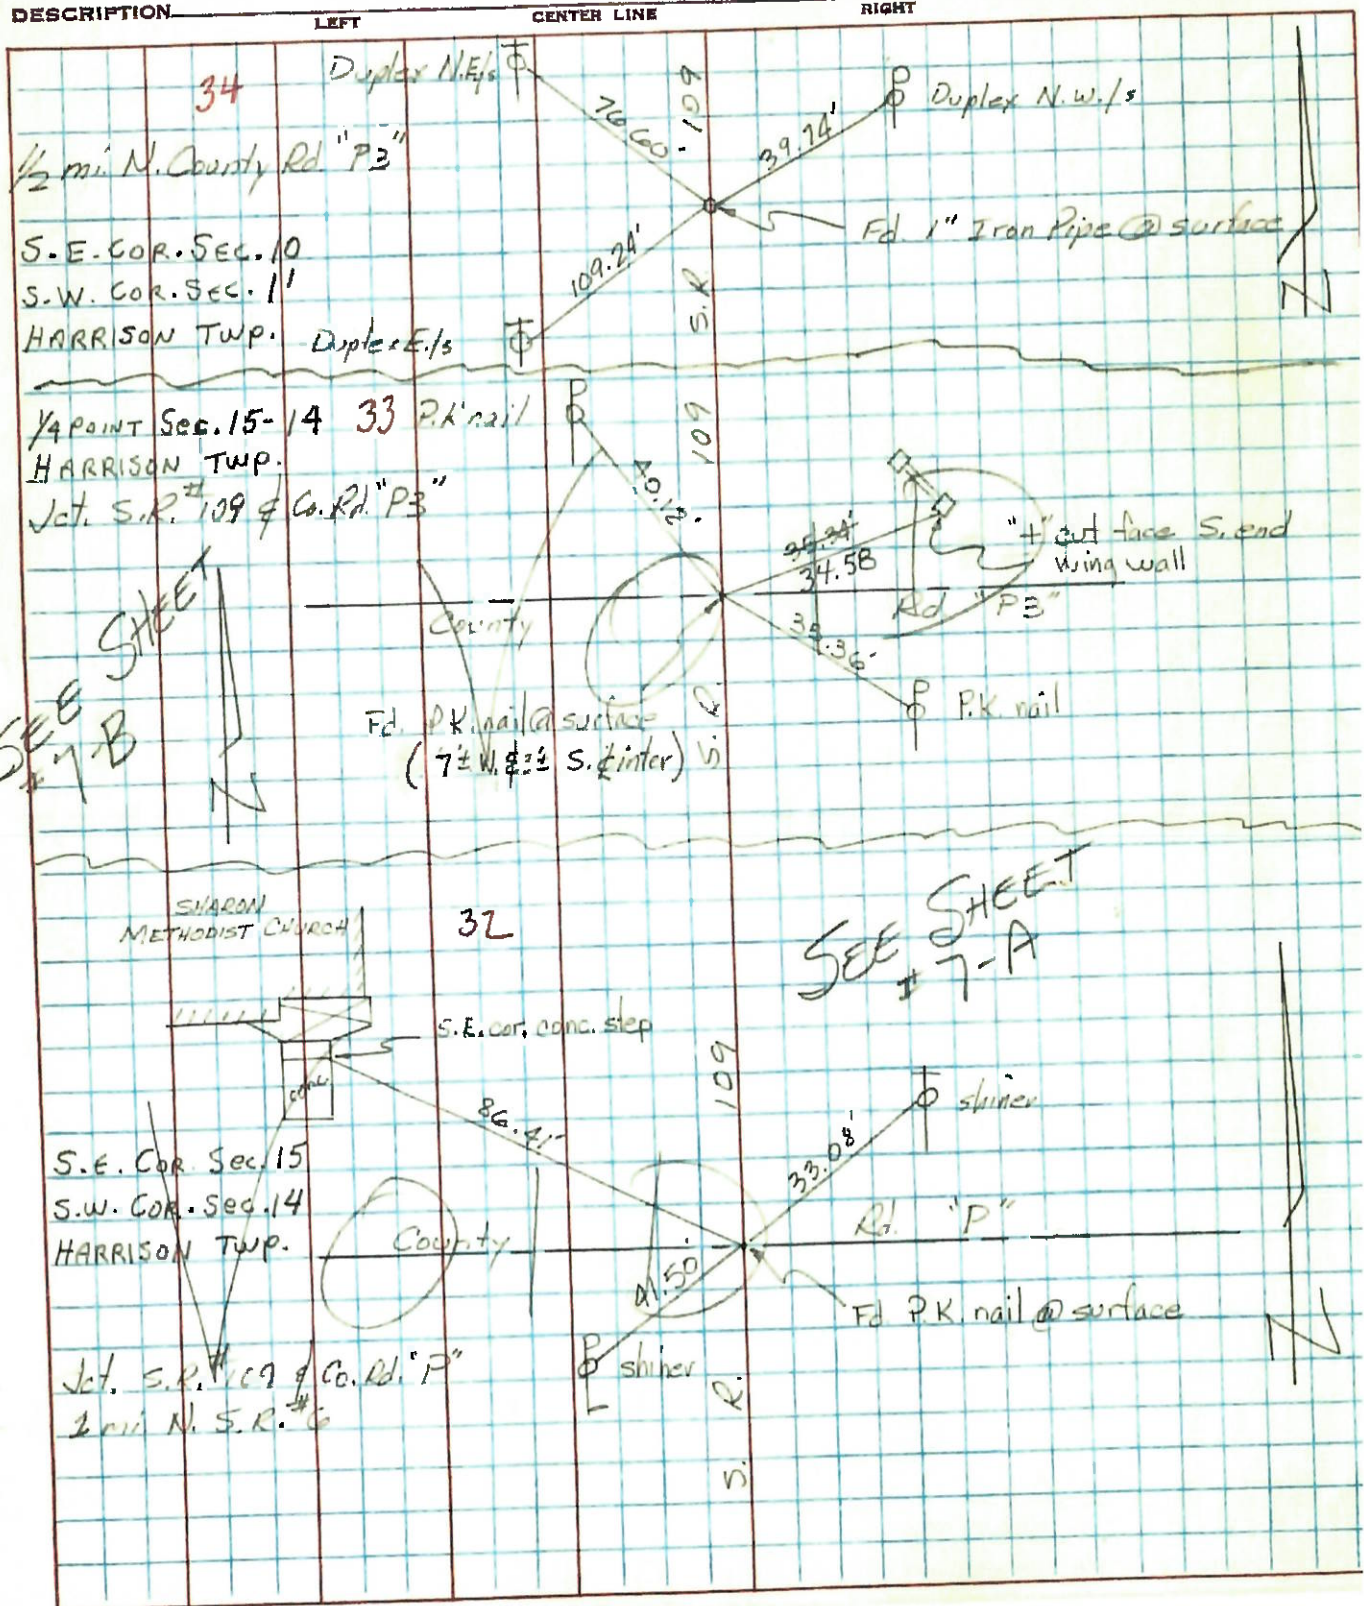 DESCRIPTION LEFT CENTER LINE RIGHT
34
Duplex N.E/s
76.60'
109
39.74'
Duplex N.W./s
1/2 mi. N. County Rd. "P3"
Fd. 1" Iron Pipe @ surface
S.E. COR. SEC. 10
S.W. COR. SEC. 11
HARRISON TWP.
Duplex E./s
109.24'
S.R.
N
1/4 POINT Sec. 15-14 33 P.K. nail
HARRISON TWP.
Jct. S.R. #109 & Co. Rd. "P3"
109
40.12'
35.34'
34.58
"+" cut face S. end
wing wall
County Rd. "P3"
35.36'
P.K. nail
SEE SHEET
#7-B
Fd. P.K. nail @ surface
S. R.
N
SHARON
METHODIST CHURCH
32
SEE SHEET
# 7-A
S.E. cor. conc. step
conc.
109
86.41'
shiner
33.08'
S.E. COR. Sec. 15
S.W. COR. Sec. 14
HARRISON TWP.
County Rd. "P"
41.50'
Fd. P.K. nail @ surface
Jct. S.R. #109 & Co. Rd. "P"
shiner
N. S.R. #6
S. R.
N